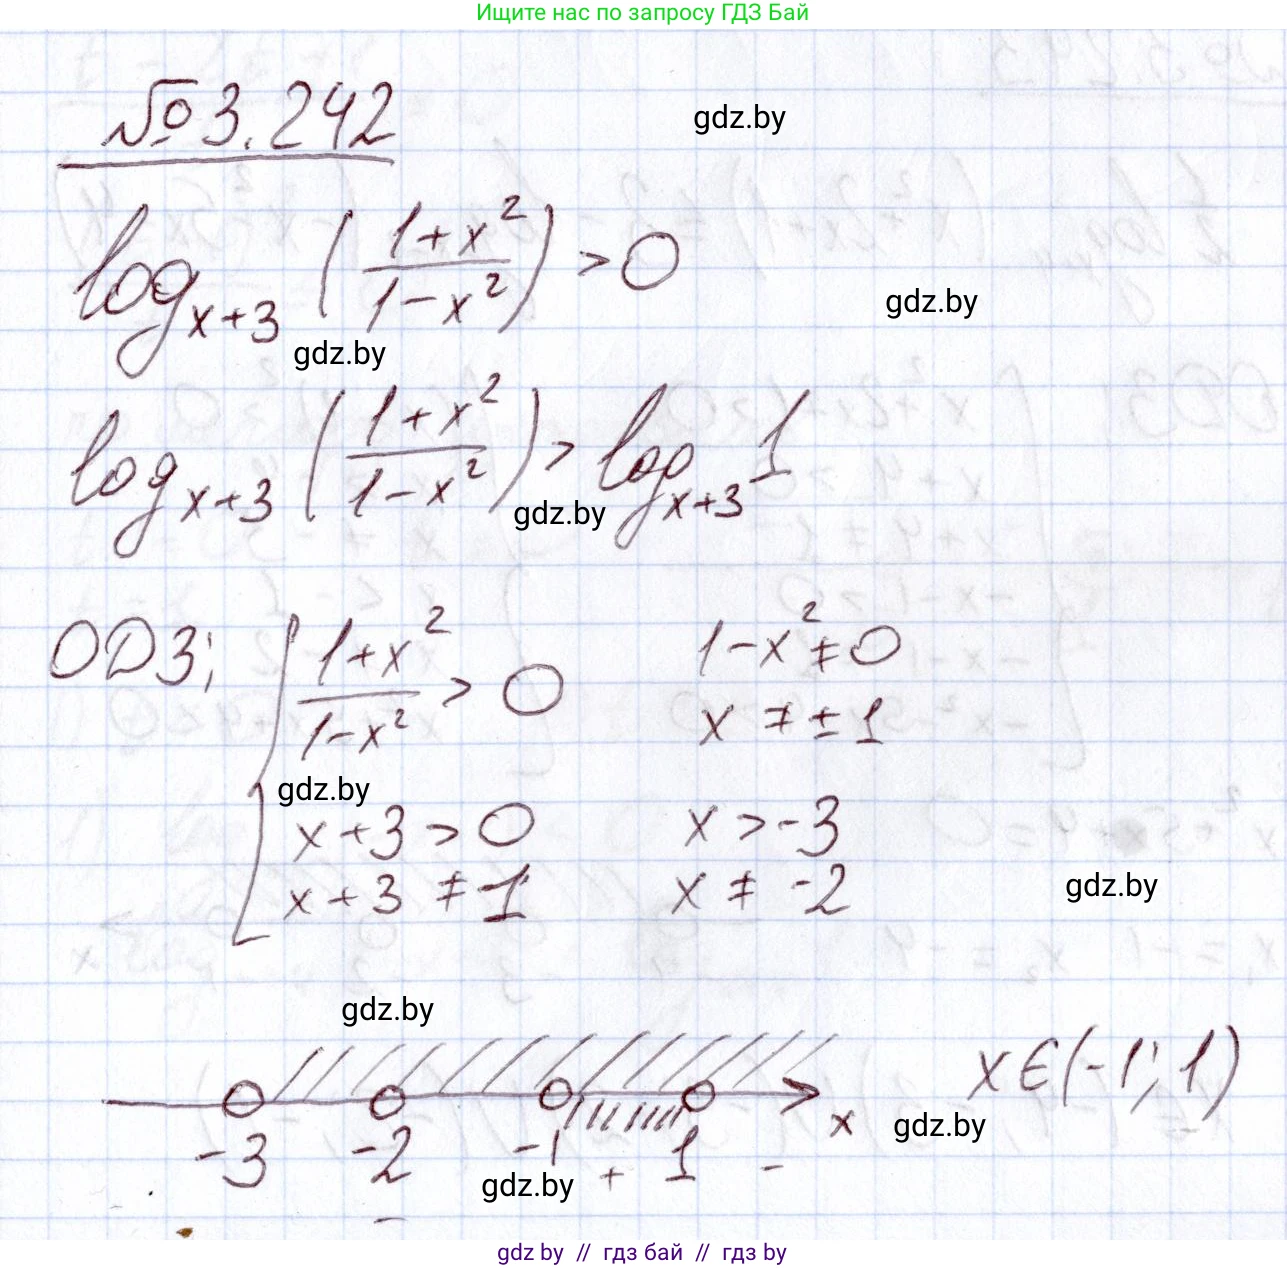 Ищите нас по запросу ГДЗ Бай
№ 3.242
gdz.by
log_{x+3} ( (1+x²)/(1-x²) ) > 0
gdz.by
gdz.by
log_{x+3} ( (1+x²)/(1-x²) ) > log_{x+3} 1
gdz.by
ОДЗ; { (1+x²)/(1-x²) > 0 1-x² ≠ 0
x ≠ ±1
gdz.by
x+3 > 0 x > -3
x+3 ≠ 1 x ≠ -2
gdz.by
gdz.by
x ∈ (-1; 1)
x
gdz.by
-3 -2 -1 + 1 -
gdz.by
-
gdz by // гдз бай // гдз by